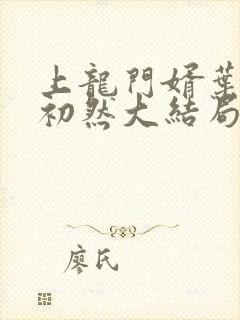 上龍門婿葉
初然大結局
廖氏